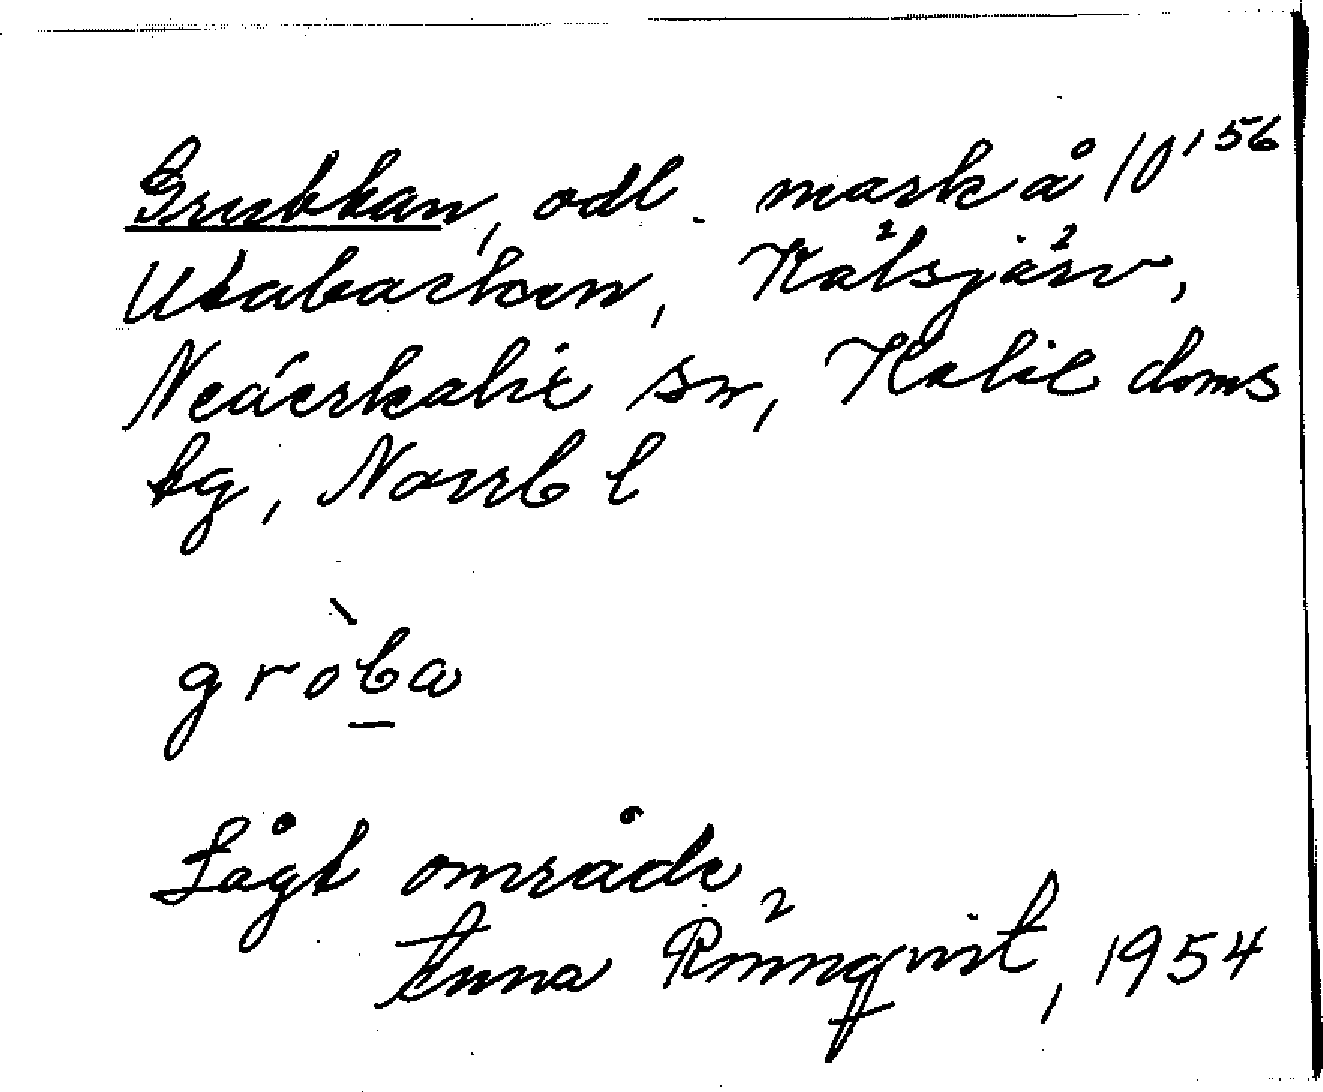 Grubban, odl. mark å 10¹⁵⁶
Utabacken, Kälsjärv,
Nederkalix sn, Kalix doms
tg, Norrb l
gròba
Lågt område
Anna Rönnqvist, 1954